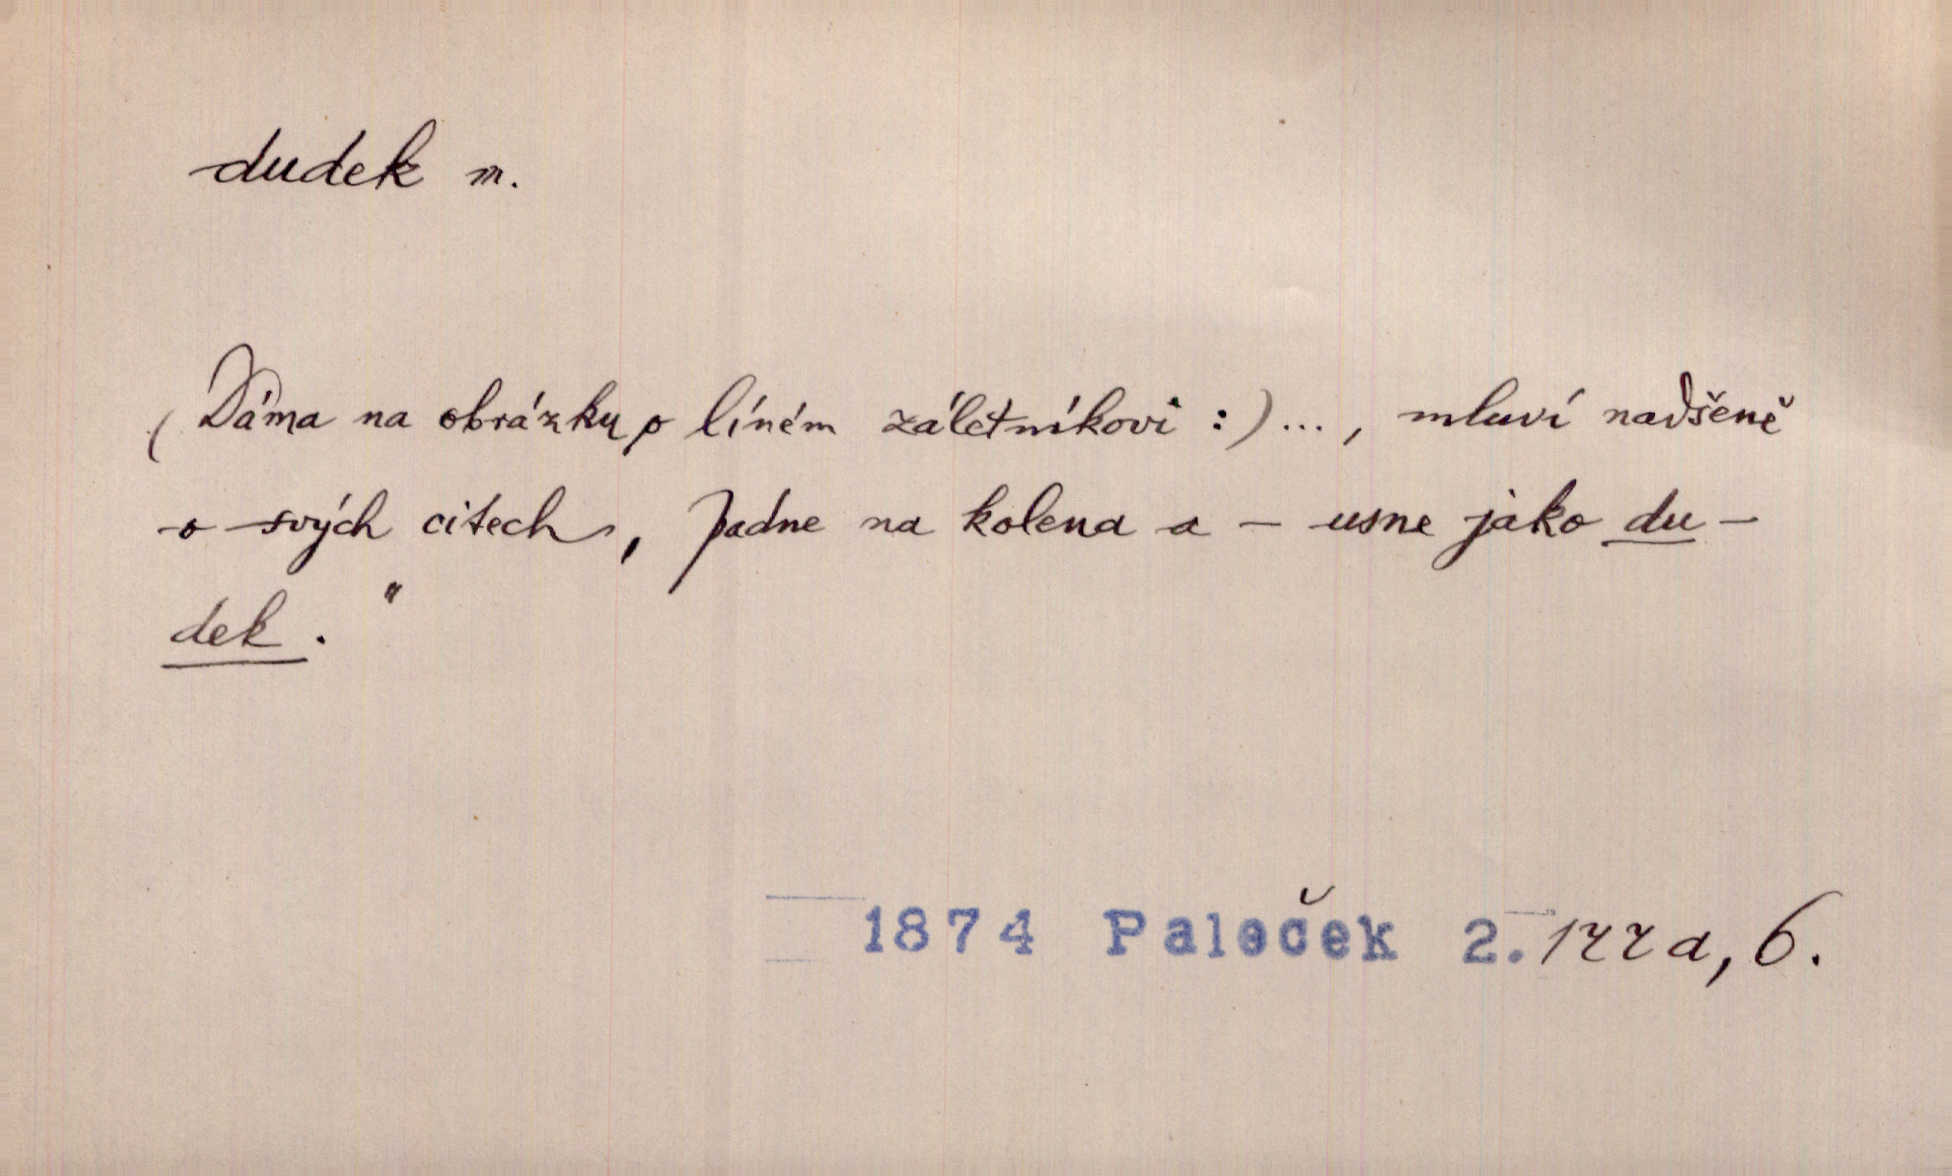 dudek m.
(Dáma na obrázku o líném záletníkovi :) ..., mluví nadšeně
o svých citech, padne na kolena a – usne jako du-
dek."
1874 Paleček 2. 177a, 6.